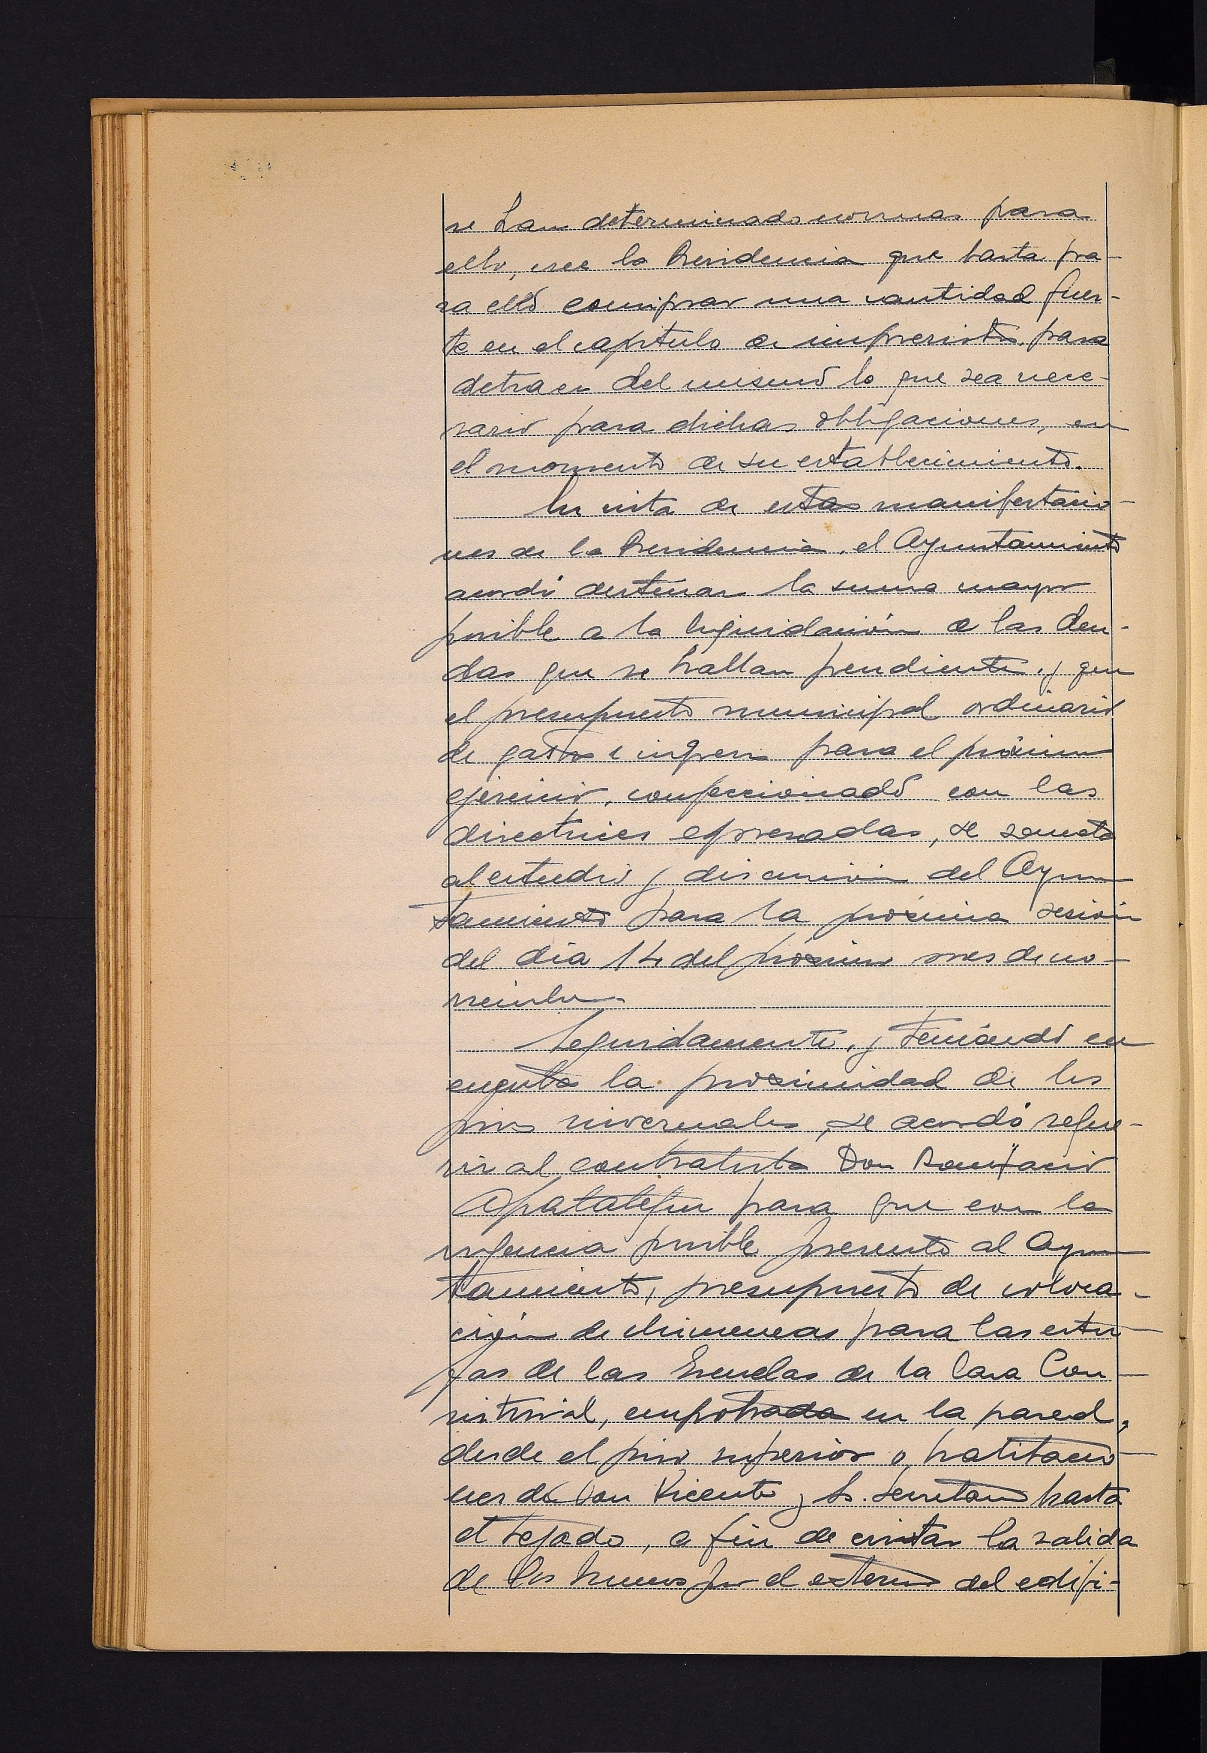 se han determinado normas para
ello, cree la Presidencia que basta pa-
ra ello comprar una cantidad fuer-
te en el capitulo de imprevistos, para
detraer del mismo lo que sea nece-
sario para dichas obligaciones, en
el momento de su establecimiento.
En vista de estas manifestacio-
nes de la Presidencia, el Ayuntamiento
acordó destinar la suma mayor
posible a la liquidación de las deu-
das que se hallan pendientes, y que
el presupuesto municipal ordinario
de gastos e ingresos para el próximo
ejercicio, confeccionado con las
directrices expresadas, se someta
al estudio y discusión del Ayun
tamiento para la próxima sesión
del día 14 del próximo mes de no-
viembre.
Seguidamente, y teniendo en
cuenta la proximidad de los
fríos invernales, se acordó reque-
rir al contratista Don Bonifacio
Apatateguı para que con la
urgencia posible presente al Ayun
tamiento, presupuesto de coloca-
ción de chimeneas para las estu-
fas de las Escuelas de la Casa Con-
sistorial, empotrada en la pared,
desde el piso superior o habitacio-
nes de Don Vicente y Sr. Secretario hasta
el tejado, a fin de evitar la salida
de los humos por el exterior del edifi-